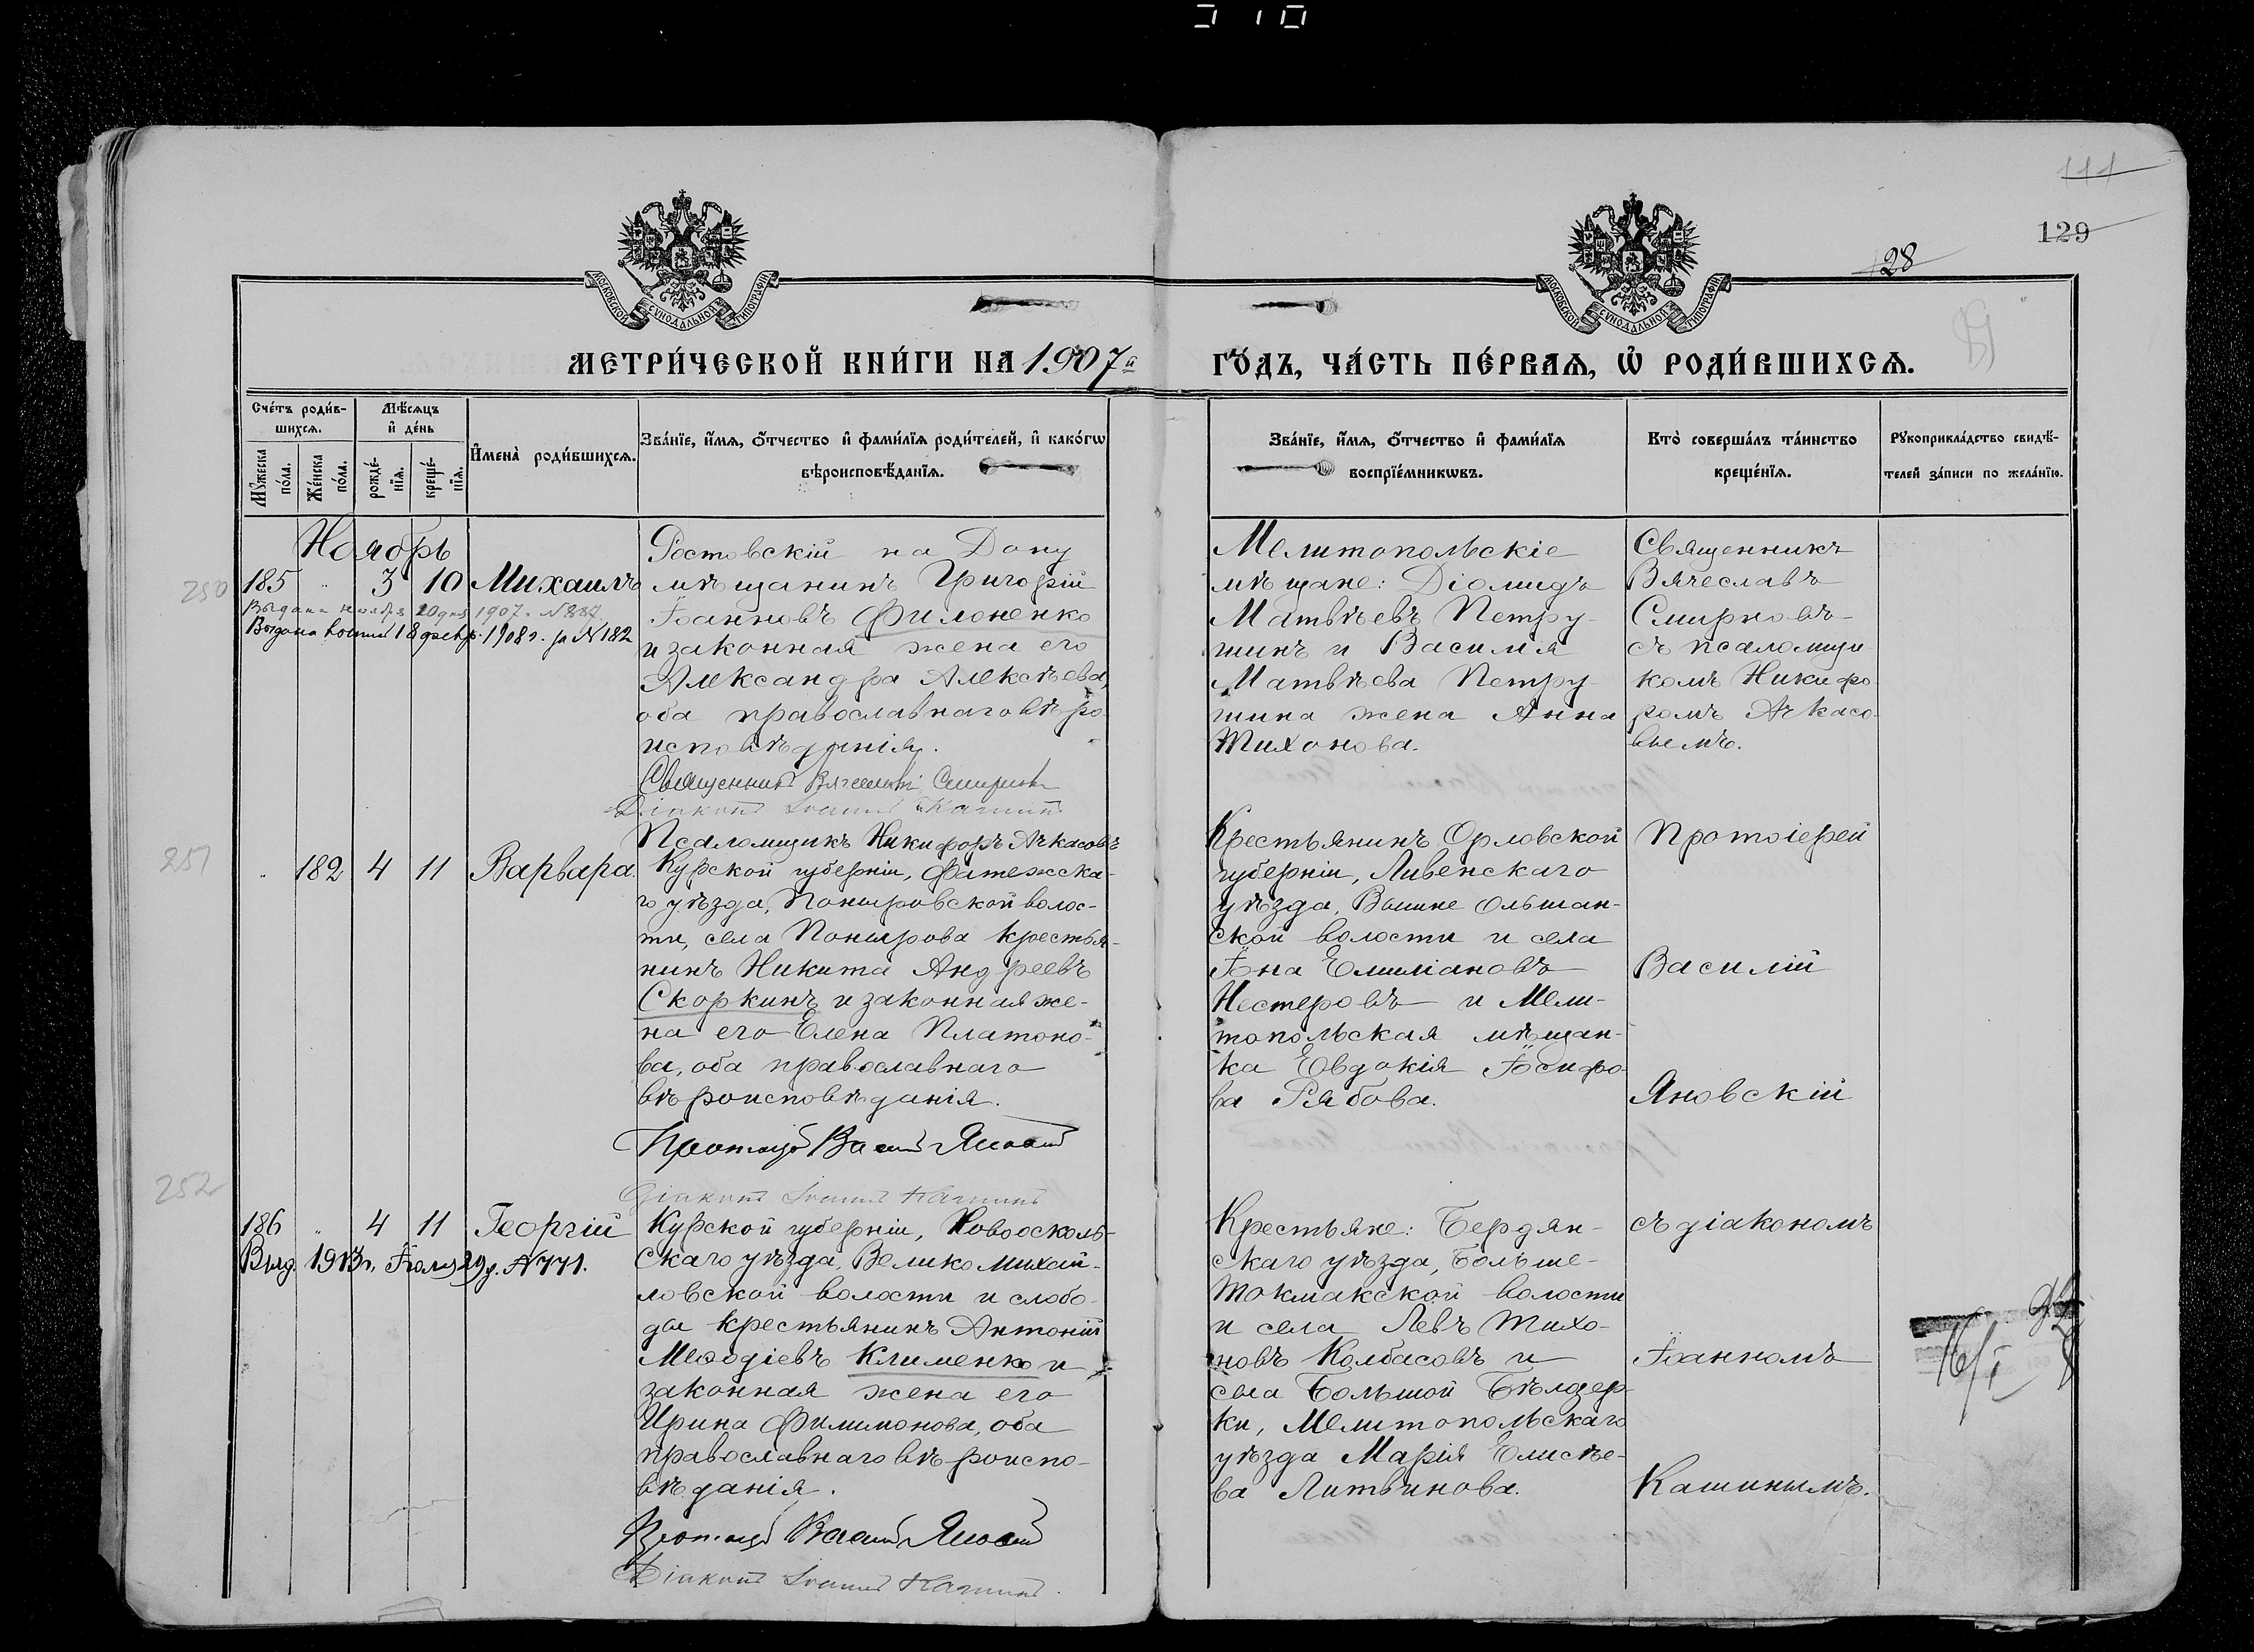 111
129
128
МОСКОВСКОЙ СУНОДАЛЬНОЙ ТИПОГРАФІИ
МОСКОВСКОЙ СУНОДАЛЬНОЙ ТИПОГРАФІИ
МЕТРИ́ЧЕСКОЙ КНИ́ГИ НА 1907й
ГО́ДЪ, ЧА́СТЬ ПЕ́РВАѦ, Ѽ РОДИ́ВШИХСѦ.
Сче́тъ роди́в-
шихсѧ.
Мѣ́сѧцъ
и҆ де́нь
Мꙋ́жеска по́ла.
Же́нска по́ла.
рожде́-нїѧ.
креще́-нїѧ.
И҆мена̀ роди́вшихсѧ.
Зва́нїе, и҆́мѧ, ѻ҆́тчество и҆ фами́лїѧ роди́телей, и҆ како́гѡ
вѣроисповѣ́данїѧ.
Зва́нїе, и҆́мѧ, ѻ҆́тчество и҆ фами́лїѧ
воспрїе́мникѡвъ.
Кто̀ соверша́лъ та́инство
креще́нїѧ.
Рꙋкоприкла́дство свидѣ́-
телей за́писи по жела́нїю.
Ноябрь
250
185 " 3 10 Михаилъ
Выдана ноября 20 дня 1907 г. №887
Выдана копия 18 февр. 1908 г. за №182
Ростовскій на Дону
мѣщанинъ Григорій
Іоанновъ Филоненко
и законная жена его
Александра Алексѣева,
оба православнаго вѣро-
исповѣданія.
Священникъ Вячеславъ Смирновъ
Діаконъ Іоаннъ Кашинъ
Псаломщикъ Никифоръ Ачкасовъ
Мелитопольскіе
мѣщане: Діомидъ
Матвѣевъ Петру-
шинъ и Василія
Матвѣева Петру-
шина жена Анна
Тихонова.
Священникъ
Вячеславъ
Смирновъ
съ псаломщи-
комъ Никифо-
ромъ Ачкасо-
вымъ.
251
" 182 4 11 Варвара.
Курской губерніи, Фатежска-
го уѣзда, Понировской волос-
ти, села Понирова крестья-
нинъ Никита Андреевъ
Скоркинъ и законная же-
на его Елена Платоно-
ва, оба православнаго
вѣроисповѣданія.
Протоіерей Василій Яновскій
Діаконъ Іоаннъ Кашинъ
Крестьянинъ Орловской
губерніи, Ливенскаго
уѣзда, Вышне Ольшан-
ской волости и села
Іона Емиліановъ
Нестеровъ и Мели-
топольская мѣщан-
ка Евдокія Іосифо-
ва Рябова.
Протоіерей
Василій
Яновскій
252
186 " 4 11 Георгій
Выд. 1913 г. Іюля 29 д. №771.
Курской губерніи, Новоосколь-
скаго уѣзда, Велико Михай-
ловской волости и слобо-
ды крестьянинъ Антоній
Меѳодіевъ Клименко и
законная жена его
Ирина Филимонова, оба
православнаго вѣроиспо-
вѣданія.
Протоіерей Василій Яновскій
Діаконъ Іоаннъ Кашинъ.
Крестьяне: Бердян-
скаго уѣзда, Больше-
Токмакской волости
и села Левъ Тихо-
новъ Колбасовъ и
села Большой Бѣлозер-
ки, Мелитопольскаго
уѣзда Марія Елисѣе-
ва Литвинова.
съ діакономъ
Іоанномъ
Кашинымъ.
16/I